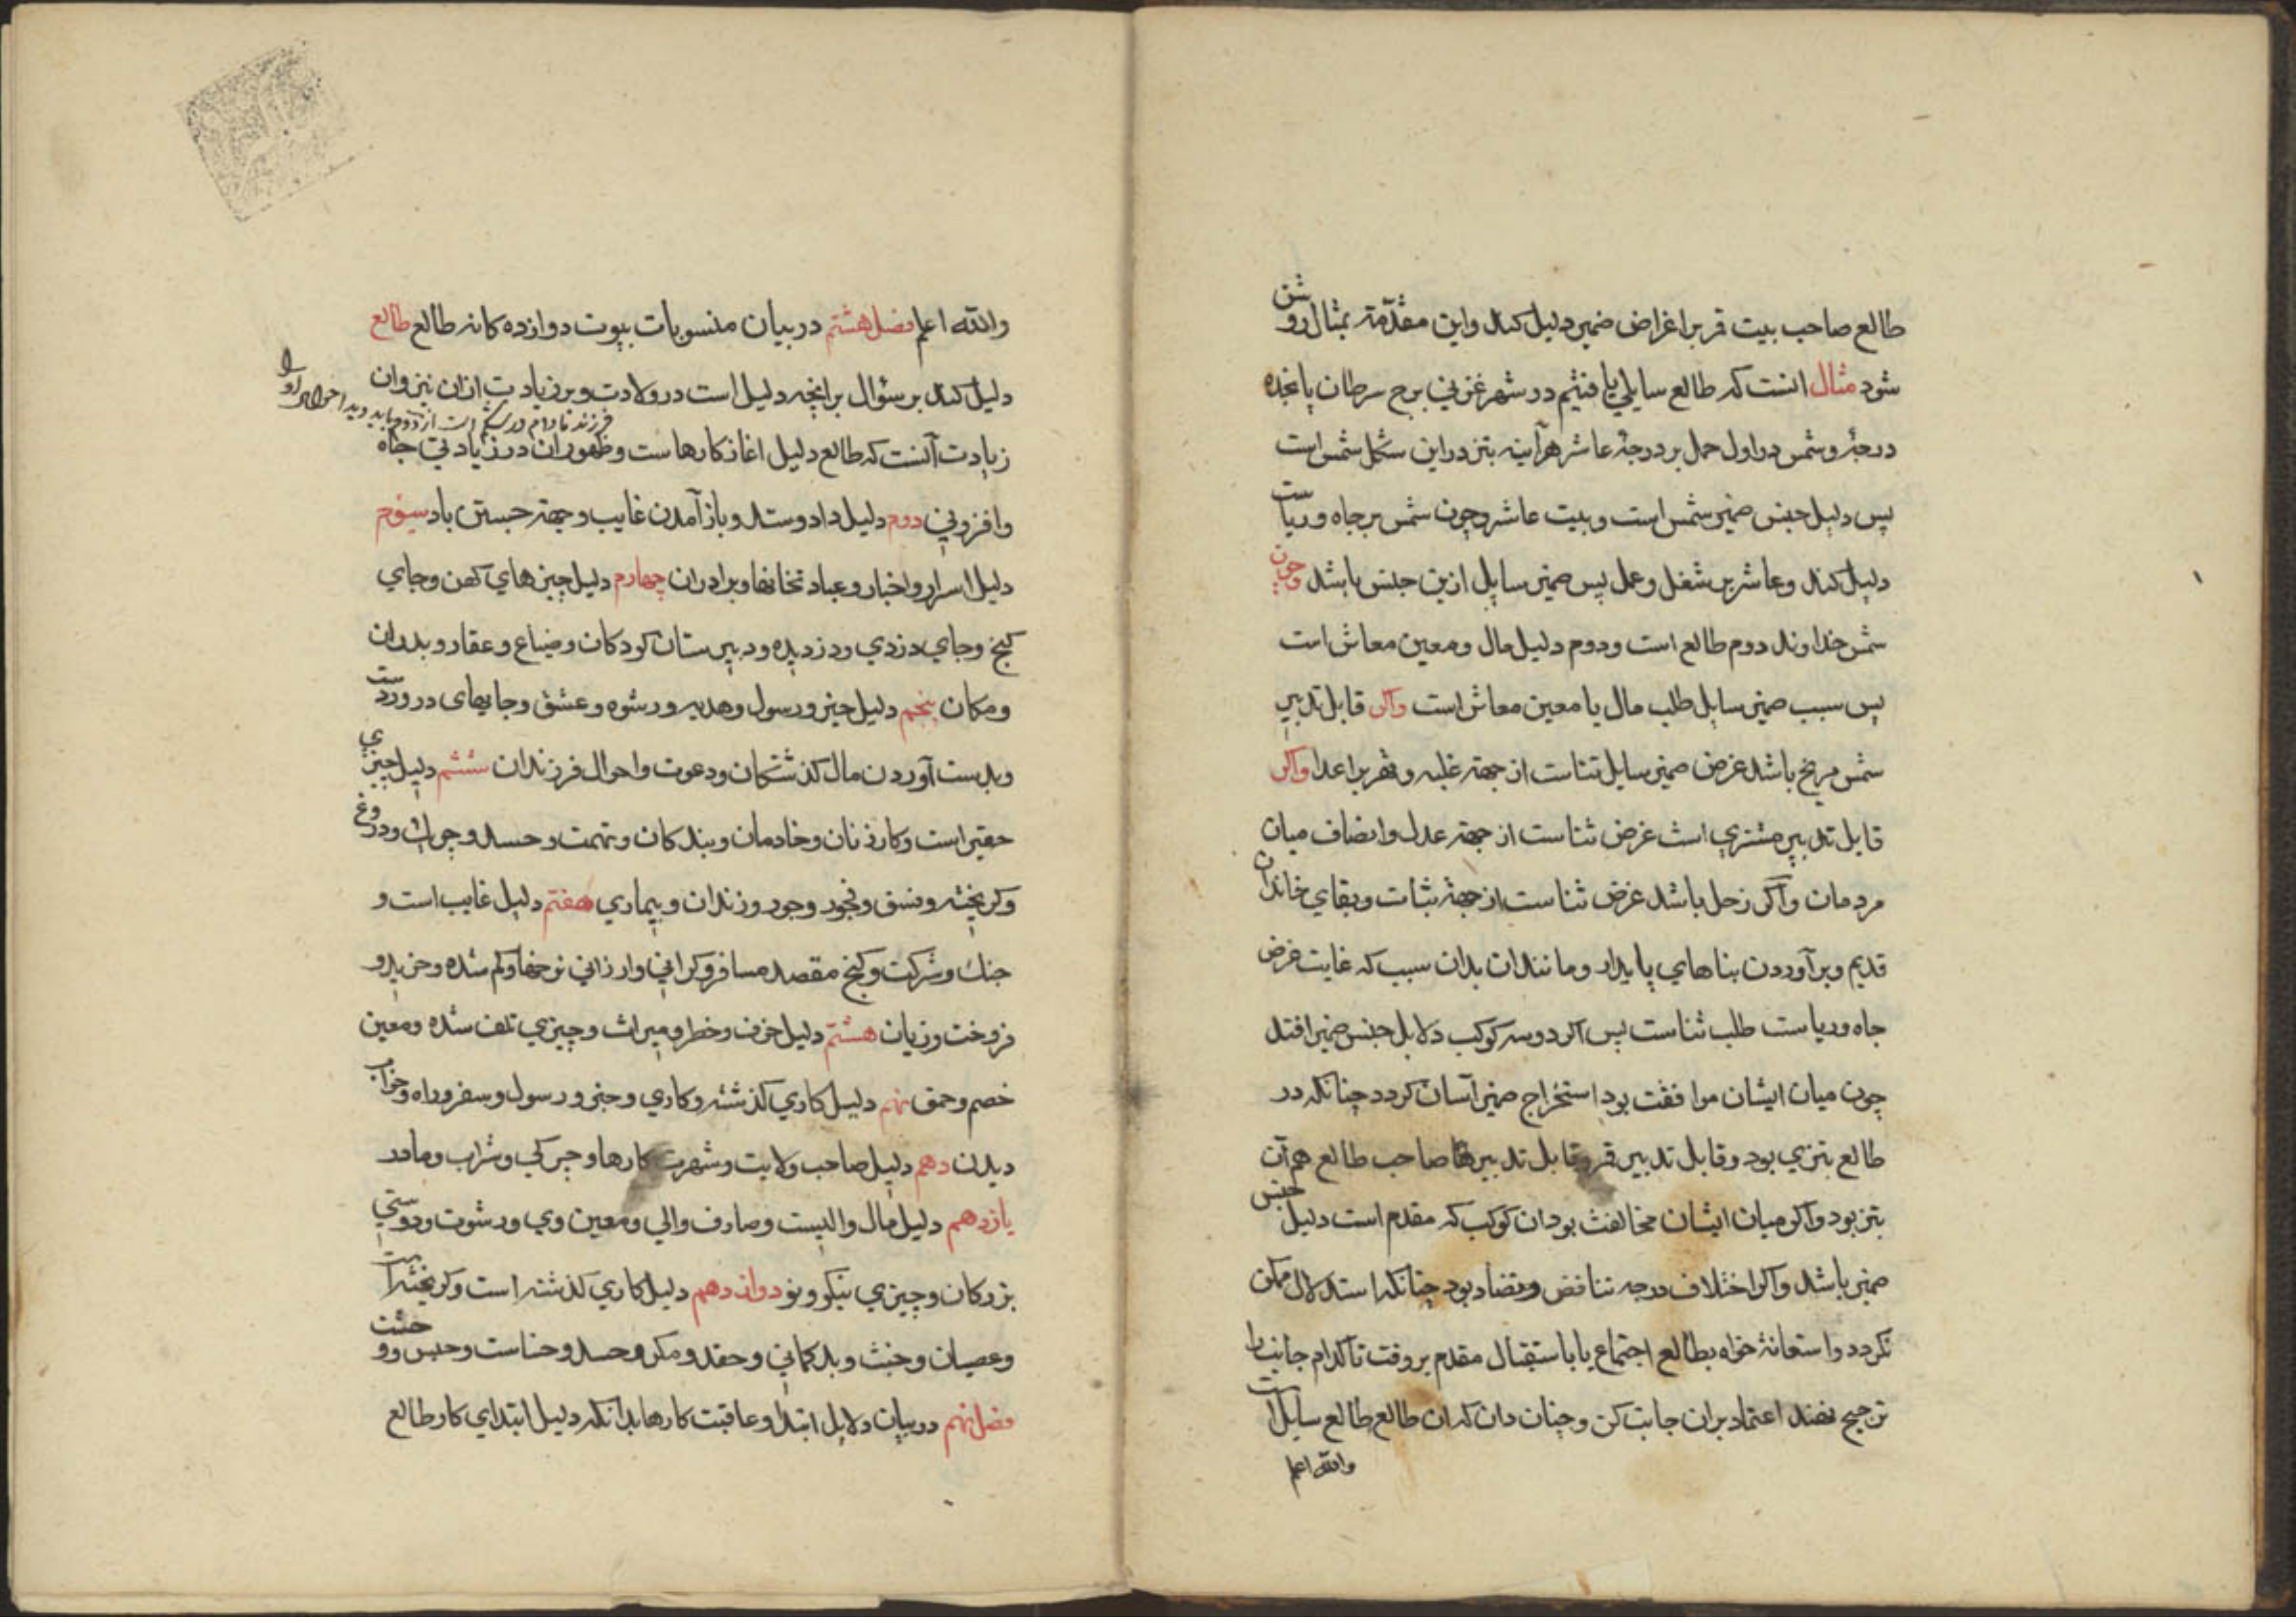 طالع صاحب بیت قمر بر اغراض ضمیر دلیل کند واین مقدّمة بمثال روشن
شود مثال انست که طالع سایلي یافتیم در شهر غزنی برج سرطان پانجده
درجهٔ وشمس در اول حمل بر درجهٔ عاشر هرآینه بتز دراین شکل شمس است
پس دلیل جنس ضمیر شمس است وبیت عاشر وچون شمس بر جاه وریاست
دلیل کند وعاشر بر شغل وعمل پس ضمیر سایل ازین جنس باشد وچون
شمس خداوند دوم طالع است ودوم دلیل مال ومعین معاش است
پس سبب ضمیر سایل طلب مال یا معین معاش است واکر قابل تدبیر
شمس مریخ باشد غرض ضمیر سایل ثناست از جهة غلبه وقهر بر اعدا واکر
قابل تدبیر مشتري است غرض ثناست از جهة عدل وانصاف میان
مردمان واکر زحل باشد غرض ثناست از جهة ثبات وبقاي خاندان
قدیم وبرآوردن بناهاي پایدار ومانندان بدان سبب که غایت غرض
جاه وریاست طلب ثناست پس اکر دوسه کوکب دلایل جنس ضمیر افتد
چون میان ایشان موافقت بود استخراج ضمیر آسان کردد چنانکه در
طالع بتزي بود وقابل تدبیر قمر وقابل تدبیر صاحب طالع هم آن
بتز بود واکر میان ایشان مخالفت بود ان کوکب که مقدم است دلیل جنس
ضمیر باشد واکر اختلاف درجه تناقض وتضاد بود چنانکه استدلال ممکن
نکردد واستعانة خواه بطالع اجتماع یا باستقبال مقدم بر وقت تا کدام جانب را
ترجیح نهند اعتماد بران جانب کن وچنان دان که ان طالع طالع سایل است
والله اعلم
والله اعلم فصل هشتم در بیان منسوبات بیوت دوازده کانه طالع طالع
دلیل کند بر سؤال بر انچه دلیل است در ولادت وبر زیادت ازان نیز وان
فرزند تا دام در شکم است از دوم باید دید احوال او را
زیادت آنست که طالع دلیل اغاز کارهاست وظهور ان در زیادتی جاه
وافزونی دوم دلیل داد وستد وباز آمدن غایب وجهة جستن باد سیوم
دلیل اسرار واخبار وعبادتخانها وبرادران چهارم دلیل چیزهاي کهن وجاي
کنج وجاي دزدي ودزدیده ودبیرستان کودکان وضیاع وعقار وپدران
ومکان پنجم دلیل خبر ورسول وهدیه ورشوه وعشق وجایهای در ورست
وبدست آوردن مال کذشتکان ودعوت واحوال فرزندان ششم دلیل چیزي
حقیر است وکار زنان وخادمان وبندکان وتهمت وحسد ودروغ
وکریخته وفسق وفجور وجود وزندان وبیماري هفتم دلیل غایب است و
جنك وشرکت وکنج مقصد مسافر وکرانی وارزانی نرخها وکم شده وخرید و
فروخت وزیان هشتم دلیل خوف وخطر ومیراث وچیزي تلف شده ومعین
خصم وحمق نهم دلیل کاري کذشته وکاري وخبر ورسول وسفر وراه وخواب
دیدن دهم دلیل صاحب ولایت وشهرت کارها وچیرکی وشراب ومادر
یازدهم دلیل مال والیست وصادف والي ومعین وي ورشوت ودوستي
بزرکان وچیزي نیکو ونو دوازدهم دلیل کاري کذشته است وکریخته است
وعصیان وخبث وبدکمانی وحقد ومکر وحسد وخناست وحبس و
فصل نهم در بیان دلایل ابتدا وعاقبت کارها بدانکه دلیل ابتداي کار طالع